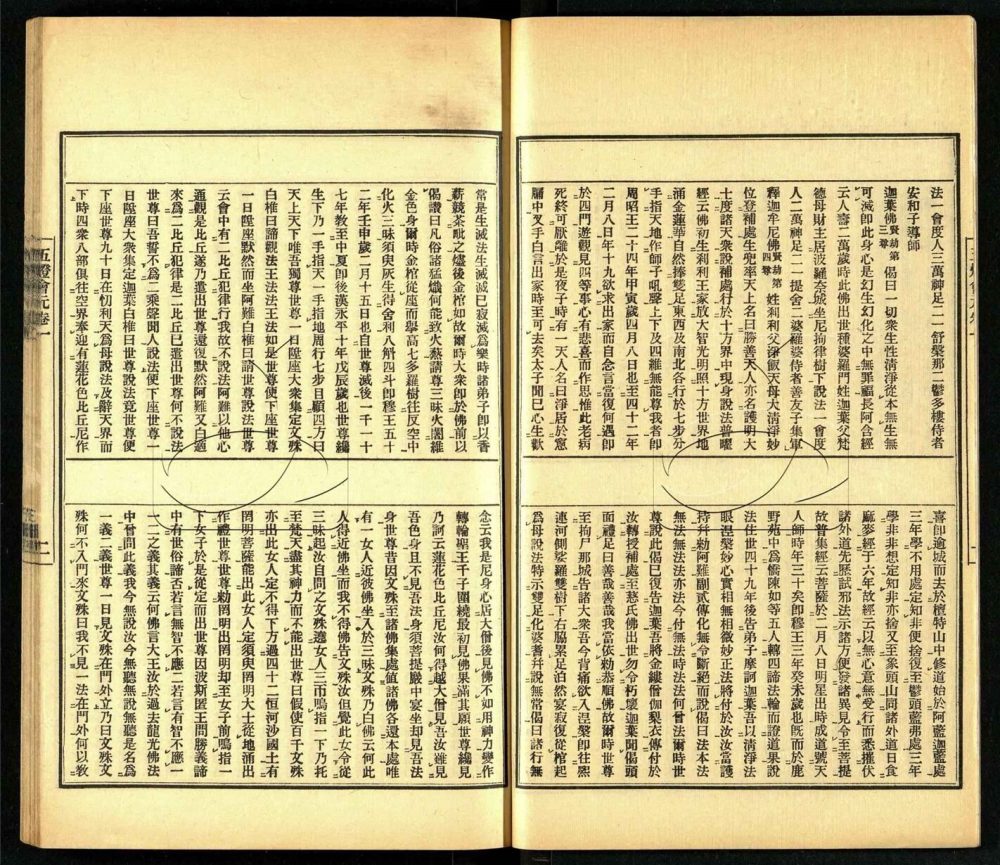 法一會度人三萬神足二一舒槃那二鬱多樓侍者
安和子導師
迦葉佛賢劫第三尊偈曰一切衆生性清淨從本無生無
可滅卽此身心是幻生幻化之中無罪福長阿含經
云人壽二萬歲時此佛出世種婆羅門姓迦葉父梵
德母財主居波羅奈城坐尼拘律樹下說法一會度
人二萬神足二一提舍二婆羅婆侍者善友子集軍
釋迦牟尼佛賢劫第四尊姓剎利父淨飯天母大清淨妙
位登補處生兜率天上名曰勝善天人亦名護明大
士度諸天衆說補處行於十方界中現身說法普曜
經云佛初生剎利王家放大智光明照十方世界地
涌金蓮華自然捧雙足東西及南北各行於七步分
手指天地作師子吼聲上下及四維無能尊我者卽
周昭王二十四年甲寅歲四月八日也至四十二年
二月八日年十九欲求出家而自念言當復何遇卽
於四門遊觀見四等事心有悲喜而作思惟此老病
死終可厭離於是夜子時有一天人名曰淨居於窻
牖中叉手白言出家時至可去矣太子聞已心生歡
喜卽逾城而去於檀特山中修道始於阿藍迦藍處
三年學不用處定知非便捨復至鬱頭藍弗處三年
學非非想定知非亦捨又至象頭山同諸外道日食
麻麥經于六年故經云以無心意無受行而悉摧伏
諸外道先歷試邪法示諸方便發諸異見令至菩提
故普集經云菩薩於二月八日明星出時成道號天
人師時年三十矣卽穆王三年癸未歲也旣而於鹿
野苑中爲憍陳如等五人轉四諦法輪而證道果說
法住世四十九年後告弟子摩訶迦葉吾以清淨法
眼涅槃妙心實相無相微妙正法將付於汝汝當護
持幷勅阿難副貳傳化無令斷絕而說偈曰法本法
無法無法法亦法今付無法時法法何曾法爾時世
尊說此偈已復告迦葉吾將金縷僧伽梨衣傳付於
汝轉授補處至慈氏佛出世勿令朽壞迦葉聞偈頭
面禮足曰善哉善哉我當依勅恭順佛故爾時世尊
至拘尸那城告諸大衆吾今背痛欲入涅槃卽往熙
連河側娑羅雙樹下右脇累足泊然宴寂復從棺起
爲母說法特示雙足化婆耆幷說無常偈曰諸行無
常是生滅法生滅滅已寂滅爲樂時諸弟子卽以香
薪競茶毗之燼後金棺如故爾時大衆卽於佛前以
偈讚曰凡俗諸猛熾何能致火爇請尊三昧火闍維
金色身爾時金棺從座而舉高七多羅樹往反空中
化火三昧須臾灰生得舍利八斛四斗卽穆王五十
二年壬申歲二月十五日也自世尊滅後一千一十
七年敎至中夏卽後漢永平十年戊辰歲也世尊纔
生下乃一手指天一手指地周行七步目顧四方曰
天上天下唯吾獨尊世尊一日陞座大衆集定文殊
白椎曰諦觀法王法法王法如是世尊便下座世尊
一日陞座默然而坐阿難白椎曰請世尊說法世尊
云會中有二比丘犯律行我故不說法阿難以他心
通觀是比丘遂乃遣出世尊還復默然阿難又白適
來爲二比丘犯律是二比丘已遣出世尊何不說法
世尊曰吾誓不爲二乘聲聞人說法便下座世尊一
日陞座大衆集定迦葉白椎曰世尊說法竟世尊便
下座世尊九十日在忉利天爲母說法及辭天界而
下時四衆八部俱往空界奉迎有蓮花色比丘尼作
念云我是尼身心居大僧後見佛不如用神力變作
轉輪聖王千子圍繞最初見佛果滿其願世尊纔見
乃訶云蓮花色比丘尼汝何得越大僧見吾汝雖見
吾色身且不見吾法身須菩提巖中宴坐却見吾法
身世尊昔因文殊至諸佛集處値諸佛各還本處唯
有一女人近彼佛坐入於三昧文殊乃白佛云何此
人得近佛坐而我不得佛告文殊汝但覺此女令從
三昧起汝自問之文殊遶女人三帀鳴指一下乃托
至梵天盡其神力而不能出世尊曰假使百千文殊
亦出此女人定不得下方過四十二恒河沙國土有
罔明菩薩能出此女人定須臾罔明大士從地涌出
作禮世尊世尊勅罔明出罔明却至女子前鳴指一
下女子於是從定而出世尊因波斯匿王問勝義諦
中有世俗諦否若言無智不應二若言有智不應一
一二之義其義云何佛言大王汝於過去龍光佛法
中曾問此義我今無說汝今無聽無說無聽是名爲
一義二義世尊一日見文殊在門外立乃曰文殊文
殊何不入門來文殊曰我不見一法在門外何以敎
五燈會元卷一
二